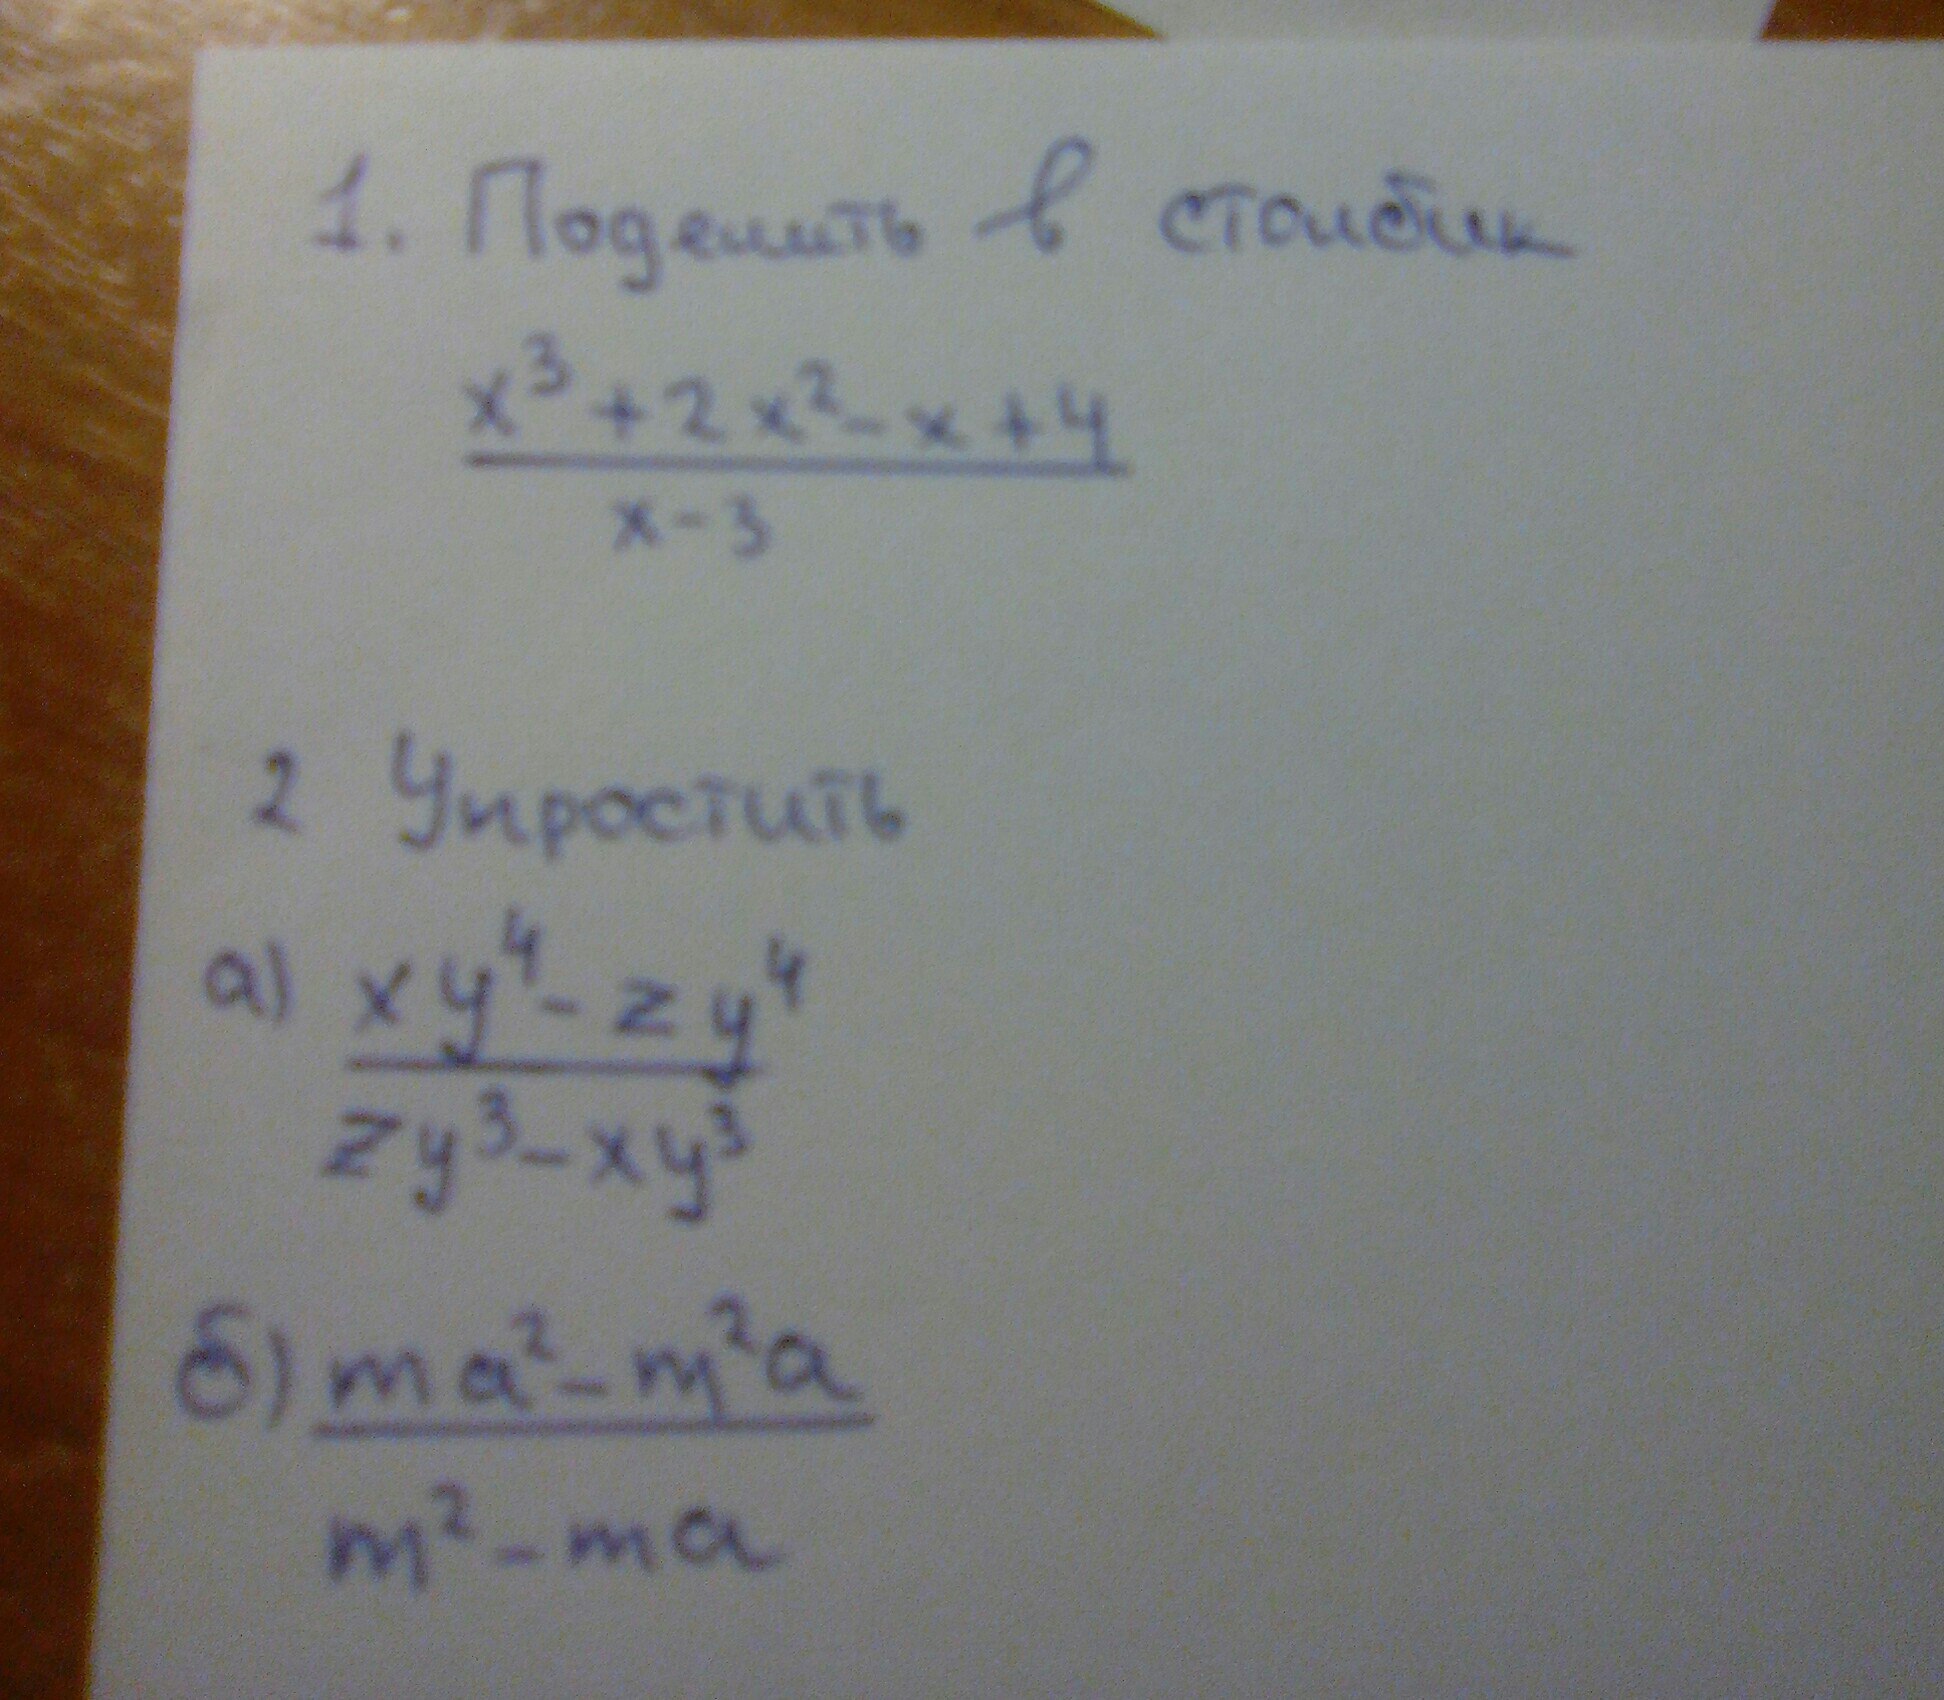 1. Поделить в столбик
x³ + 2x² - x + 4
x - 3
2 Упростить
а) xy⁴ - zy⁴
zy³ - xy³
б) ma² - m²a
m² - ma